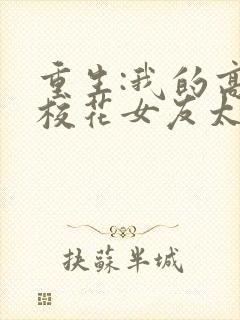 重生:我的高
校花女友太
扶蘇半城